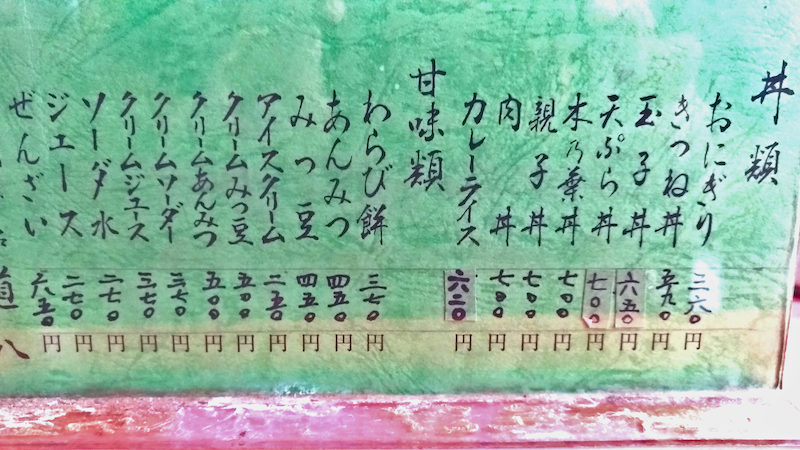 丼類
おにぎり 三六〇円
きつね丼 五九〇円
玉子丼 六五〇円
天ぷら丼 七〇〇円
木乃葉丼 七〇〇円
親子丼 七〇〇円
肉丼 七〇〇円
カレーライス 六二〇円
甘味類
わらび餅 三七〇円
あんみつ 四五〇円
みつ豆 四五〇円
アイスクリーム 二五〇円
クリームみつ豆 五〇〇円
クリームあんみつ 五〇〇円
クリームソーダー 三七〇円
クリームジュース 三七〇円
ソーダ水 二七〇円
ジュース 二七〇円
ぜんざい 六五〇円